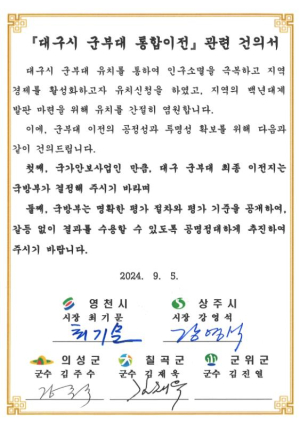 『대구시 군부대 통합이전』 관련 건의서
대구시 군부대 유치를 통하여 인구소멸을 극복하고 지역
경제를 활성화하고자 유치신청을 하였고, 지역의 백년대계
발판 마련을 위해 유치를 간절히 염원합니다.
이에, 군부대 이전의 공정성과 투명성 확보를 위해 다음과
같이 건의드립니다.
첫째, 국가안보사업인 만큼, 대구 군부대 최종 이전지는
국방부가 결정해 주시기 바라며
둘째, 국방부는 명확한 평가 절차와 평가 기준을 공개하여,
갈등 없이 결과를 수용할 수 있도록 공명정대하게 추진하여
주시기 바랍니다.
2024. 9. 5.
영천시 상주시
시장 최기문 시장 강영석
최기문 강영석
의성군 칠곡군 군위군
군수 김주수 군수 김재욱 군수 김진열
김재욱